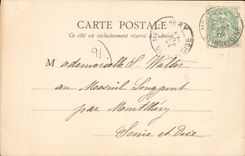 CARTE POSTALE
Ce côté est exclusivement réservé à l'adresse
Mademoiselle S. Walter
au Mesnil Longpont
par Montlhéry
Seine et Oise